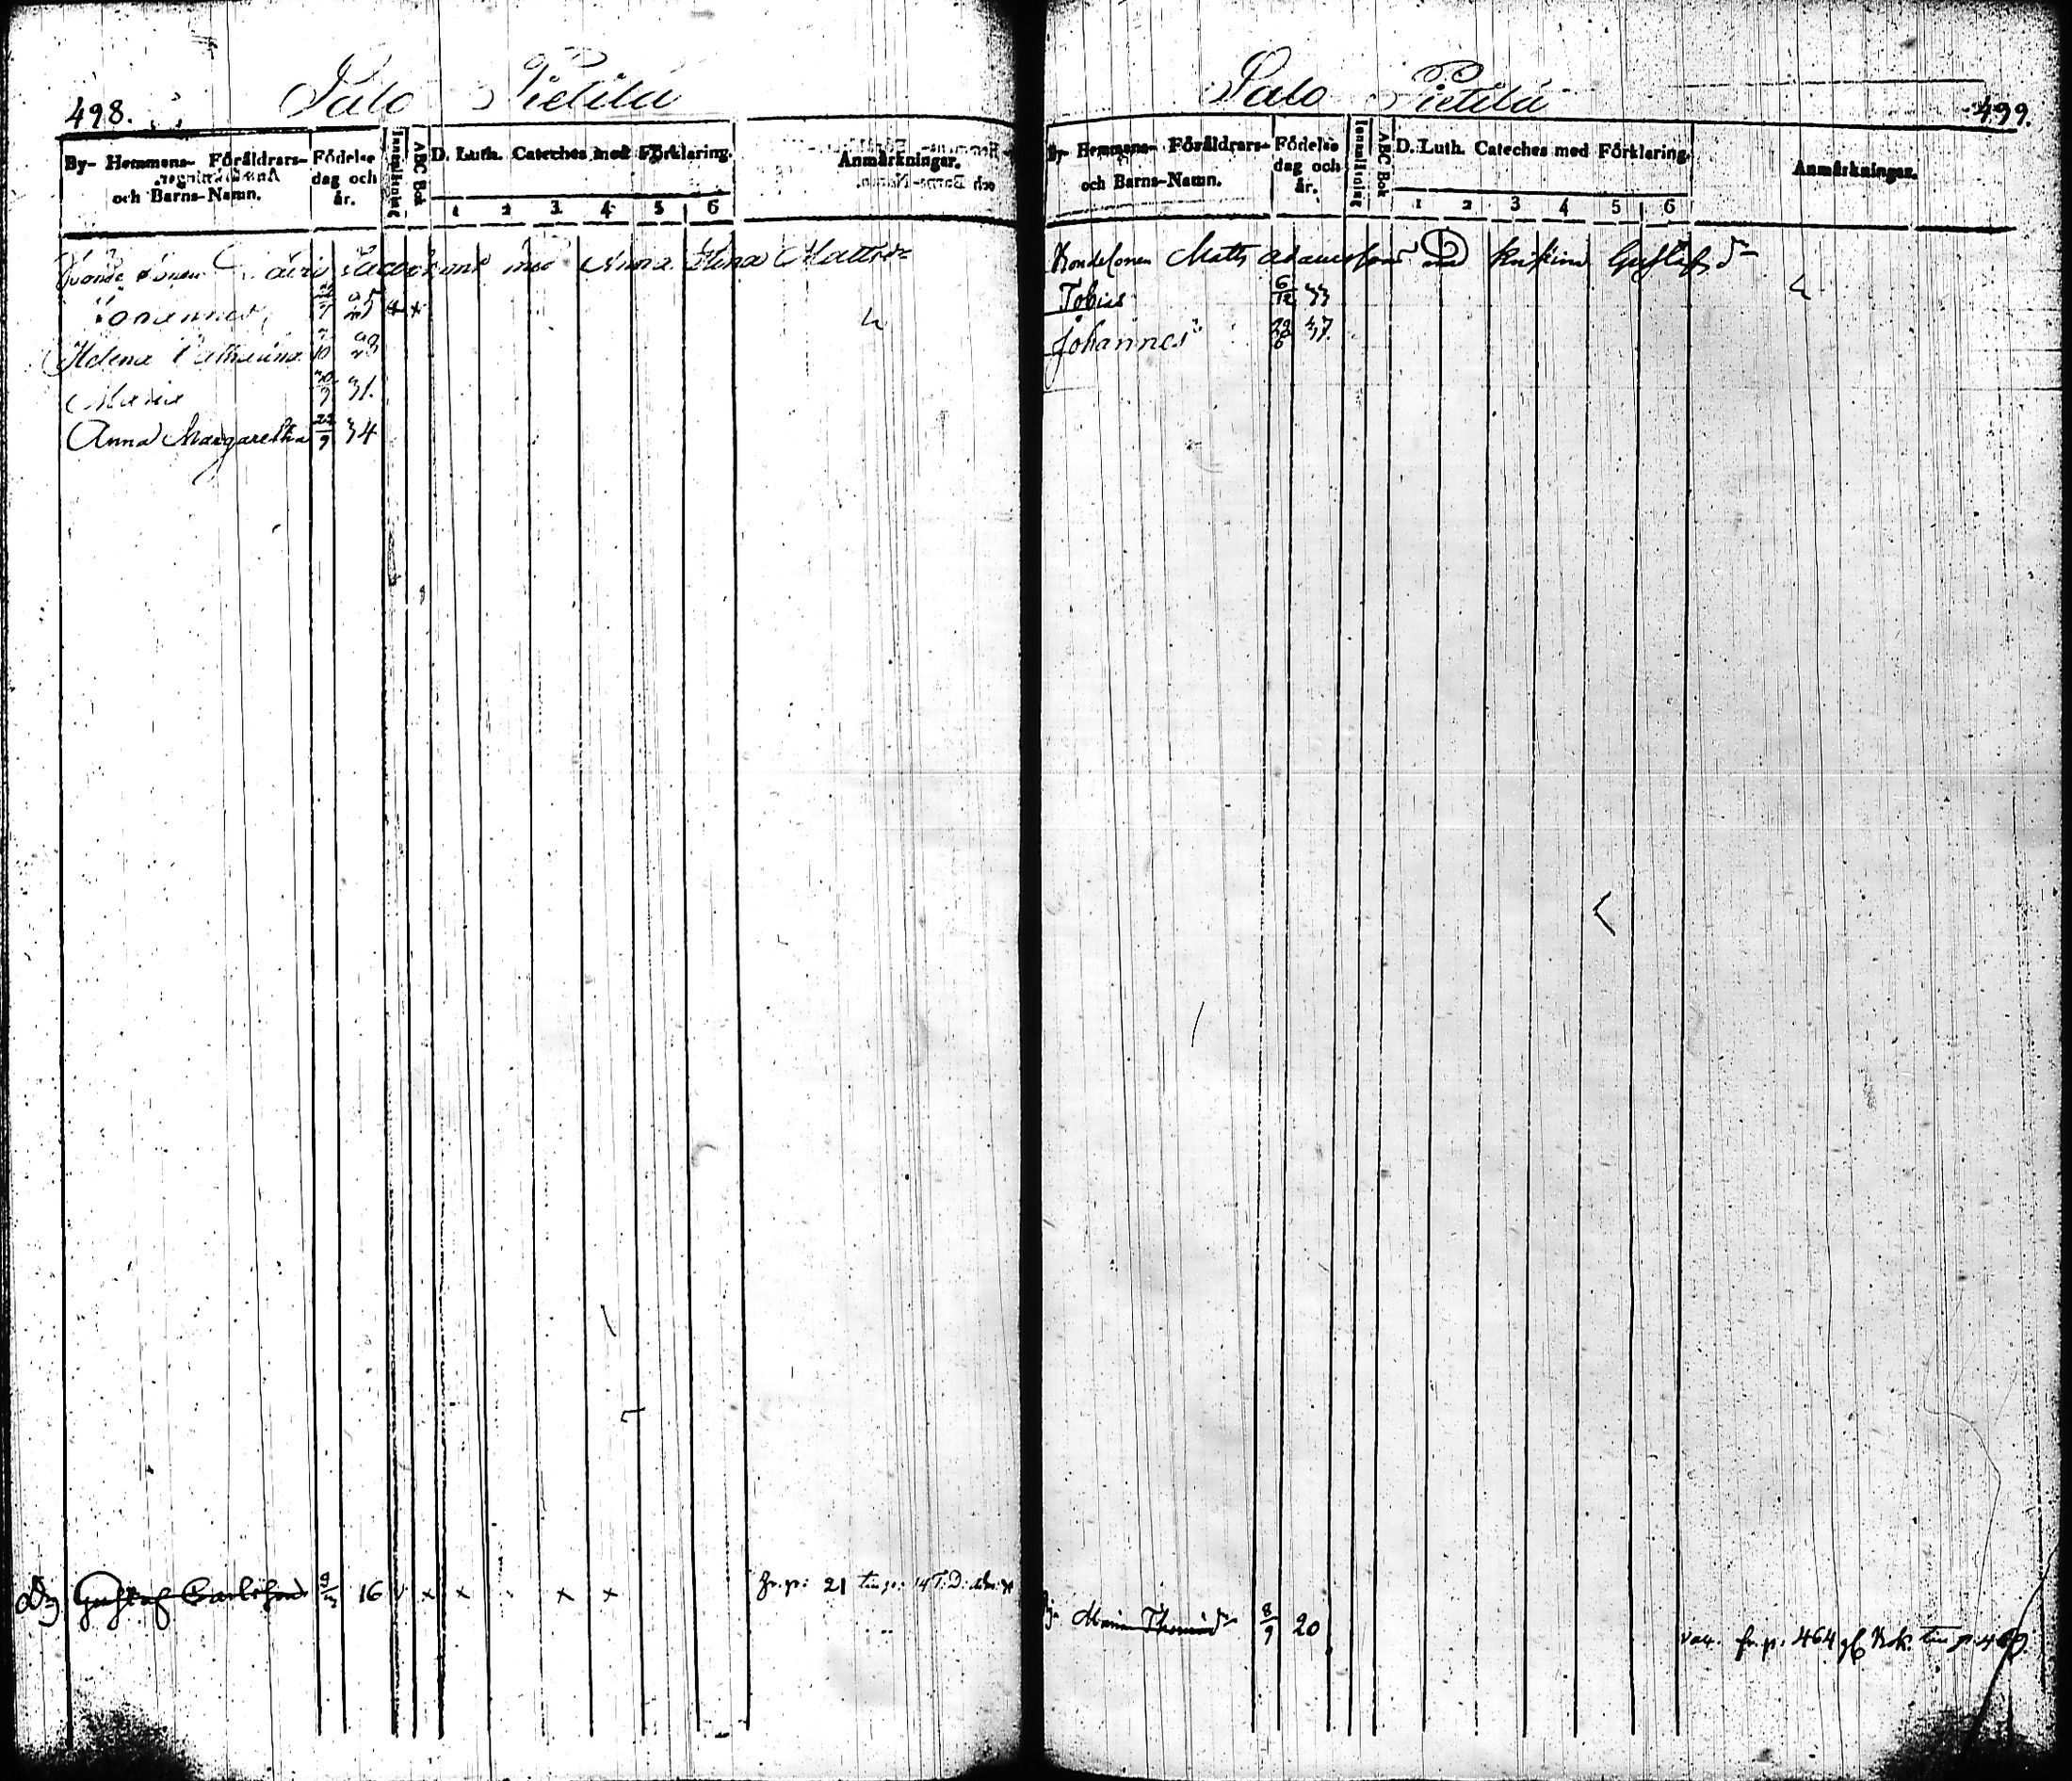 498.
Salo Pietilä
By- Hemmens- Föräldrars- och Barns-Namn.
Födelse dag och år.
Innanläsning
ABC Bok
D. Luth. Cateches med Förklaring.
1 2 3 4 5 6
Anmärkningar.
Bonde sonen Jacobsons med Anna Stina Matts dr
Johannes 25 + +
Helena Catharina 10 28
Maria 30/3 31.
Anna Margaretha 22/9 34
Dg Gustaf Carlsson 9/3 16 v x x x x fr. p: 21 till p: 14 T: D:
499.
Salo Pietilä
By- Hemmens- Föräldrars- och Barns-Namn.
Födelse dag och år.
Innanläsning
ABC Bok
D. Luth. Cateches med Förklaring.
1 2 3 4 5 6
Anmärkningar.
Bondesonen Matts Adamsson med Kristina Gustafs dr
Tobias 6/12 33
Johannes 29/6 37.
Maria Thomæd r 8/9 20 fr. p: 464 gl Bok.